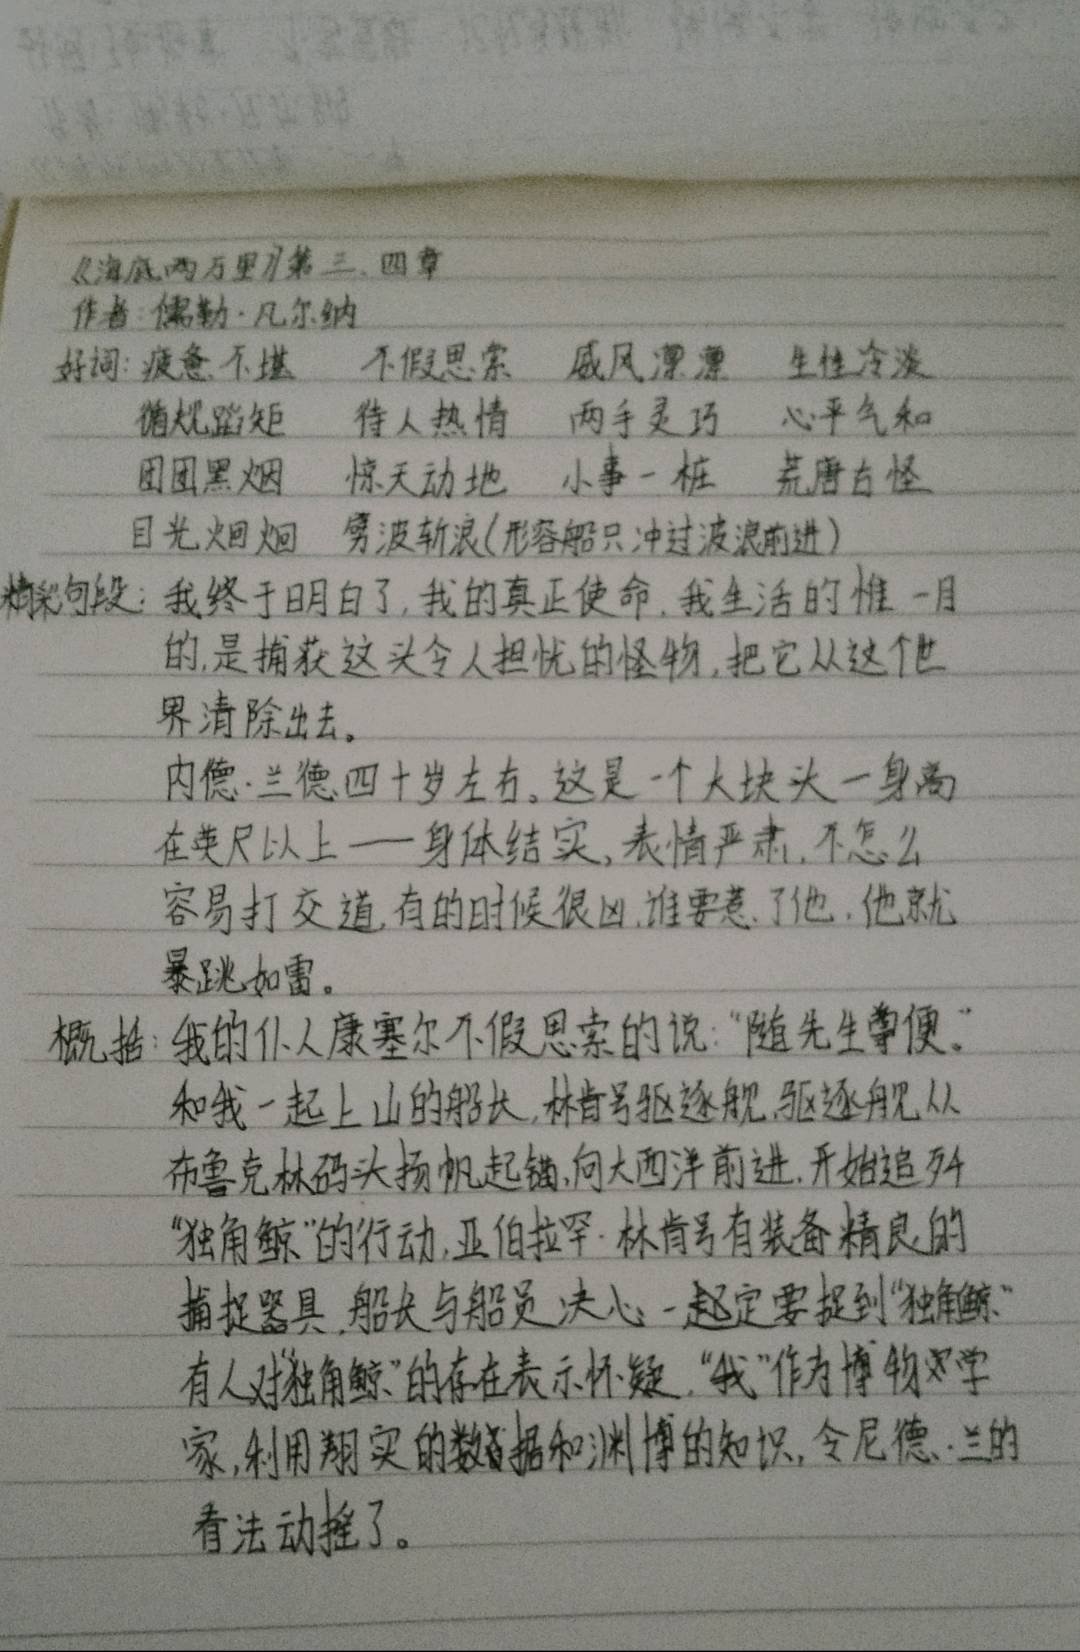 《海底两万里》第三、四章
作者:儒勒·凡尔纳
好词:疲惫不堪 不假思索 威风凛凛 生性冷淡
循规蹈矩 待人热情 两手灵巧 心平气和
团团黑烟 惊天动地 小事一桩 荒唐古怪
目光炯炯 劈波斩浪(形容船只冲过波浪前进)
精彩句段:我终于明白了,我的真正使命,我生活的惟一目
的,是捕获这头令人担忧的怪物,把它从这个世
界清除出去。
内德·兰德四十岁左右。这是一个大块头一身高
在英尺以上——身体结实,表情严肃,不怎么
容易打交道,有的时候很凶,谁要惹了他,他就
暴跳如雷。
概括:我的仆人康塞尔不假思索的说:“随先生尊便。”
和我一起上山的船长,林肯号驱逐舰,驱逐舰从
布鲁克林码头扬帆起锚,向大西洋前进,开始追歼
“独角鲸”的行动,亚伯拉罕·林肯号有装备精良的
捕捉器具,船长与船员决心一起定要捉到“独角鲸”
有人对“独角鲸”的存在表示怀疑,“我”作为博物学
家,利用翔实的数据和渊博的知识,令尼德·兰的
看法动摇了。